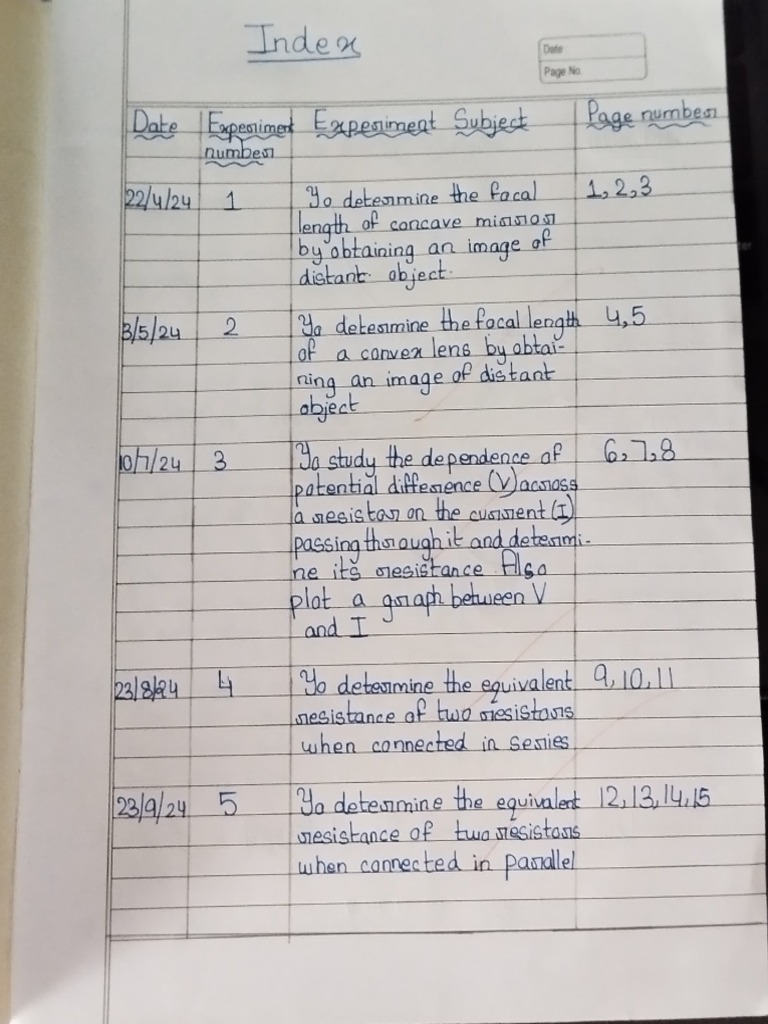 Index
Date
Page No.
Date Experiment Experiment Subject Page number
number
22/4/24 1 To determine the focal 1, 2, 3
length of concave mirror
by obtaining an image of
distant object.
3/5/24 2 To determine the focal length 4,5
of a convex lens by obtai-
ning an image of distant
object
10/7/24 3 To study the dependence of 6,7,8
potential difference (V) across
a resistor on the current (I)
passing through it and determi-
ne its resistance. Also
plot a graph between V
and I
23/8/24 4 To determine the equivalent 9,10,11
resistance of two resistors
when connected in series
23/9/24 5 To determine the equivalent 12,13,14,15
resistance of two resistors
when connected in parallel